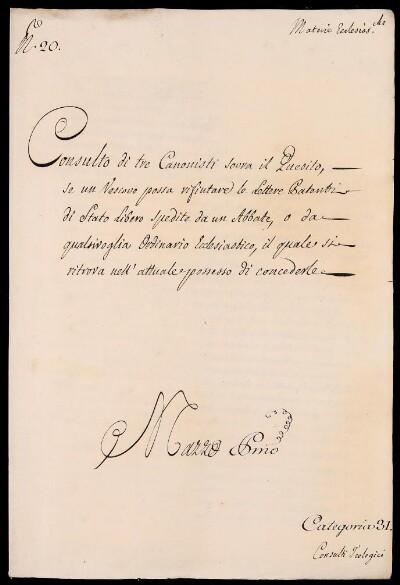 N.º 20.
Materie Ecclesias.che
Consulto di tre Canonisti sovra il Quesito,
se un Vescovo possa rifiutare le Lettere Patenti
di Stato libero spedite da un Abbate, o da
qualsivoglia Ordinario Ecclesiastico, il quale si
ritrova nell' attuale possesso di concederle
Mazzo Pmo
Categoria 31.
Consulti Teologici